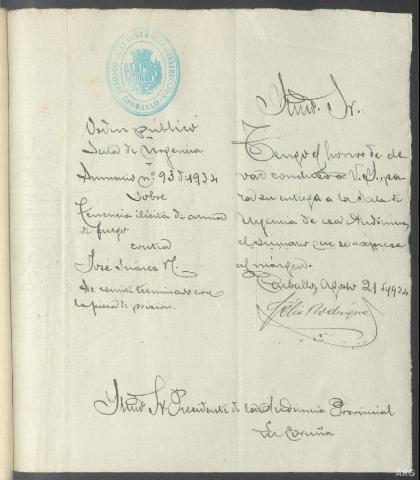 JUZGADO DE 1ª INSTANCIA E INSTRUCCION
CARBALLO
Orden público
Sala de Urgencia
Sumario nº 93 de 1934
Sobre
Tenencia ilícita de arma
de fuego
contra
José Suárez
Se remite terminado con
la pieza de prisión.
Iltmo. Sr.
Tengo el honor de ele
var conducto a V.I., pa
ra su entrega a la Sala de
Urgencia de esa Audiencia,
el sumario que se expresa
al márgen.
Carballo, Agosto 21 de 1934
Félix Rodríguez
Iltmo. Sr. Presidente de la Audiencia Provincial
La Coruña
ARG